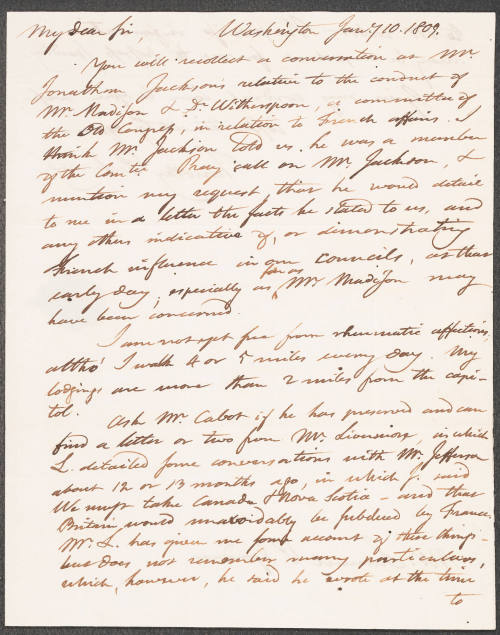 My dear Sir, Washington Jany 10. 1809.
You will recollect a conversation at Mr.
Jonathan Jackson's relative to the conduct of
Mr. Madison & Dr. Witherspoon, a committee of
the Old Congress, in relation to French affairs. I
think Mr. Jackson told us he was a member
of the Comtee. Pray call on Mr. Jackson, &
mention my request that he would detail
to me in a letter the facts he stated to us, and
any others indicative of, or demonstrating
French influence in our councils, at that
early day, especially as far as Mr. Madison may
have been concerned.
I am not yet free from rheumatic affections,
altho' I walk 4 or 5 miles every day. My
lodgings are more than 2 miles from the capi-
tol.
Ask Mr. Cabot if he has preserved and can
find a letter or two from Mr. in which
L. detailed some conversations with Mr. Jefferson
about 12 or 13 months ago, in which J. said
We must take Canada & Nova Scotia - and that
Britain would unavoidably be subdued by France.
Mr. L. has given me some account of these things -
but does not remember many particulars,
which, however, he said he wrote at the time
to